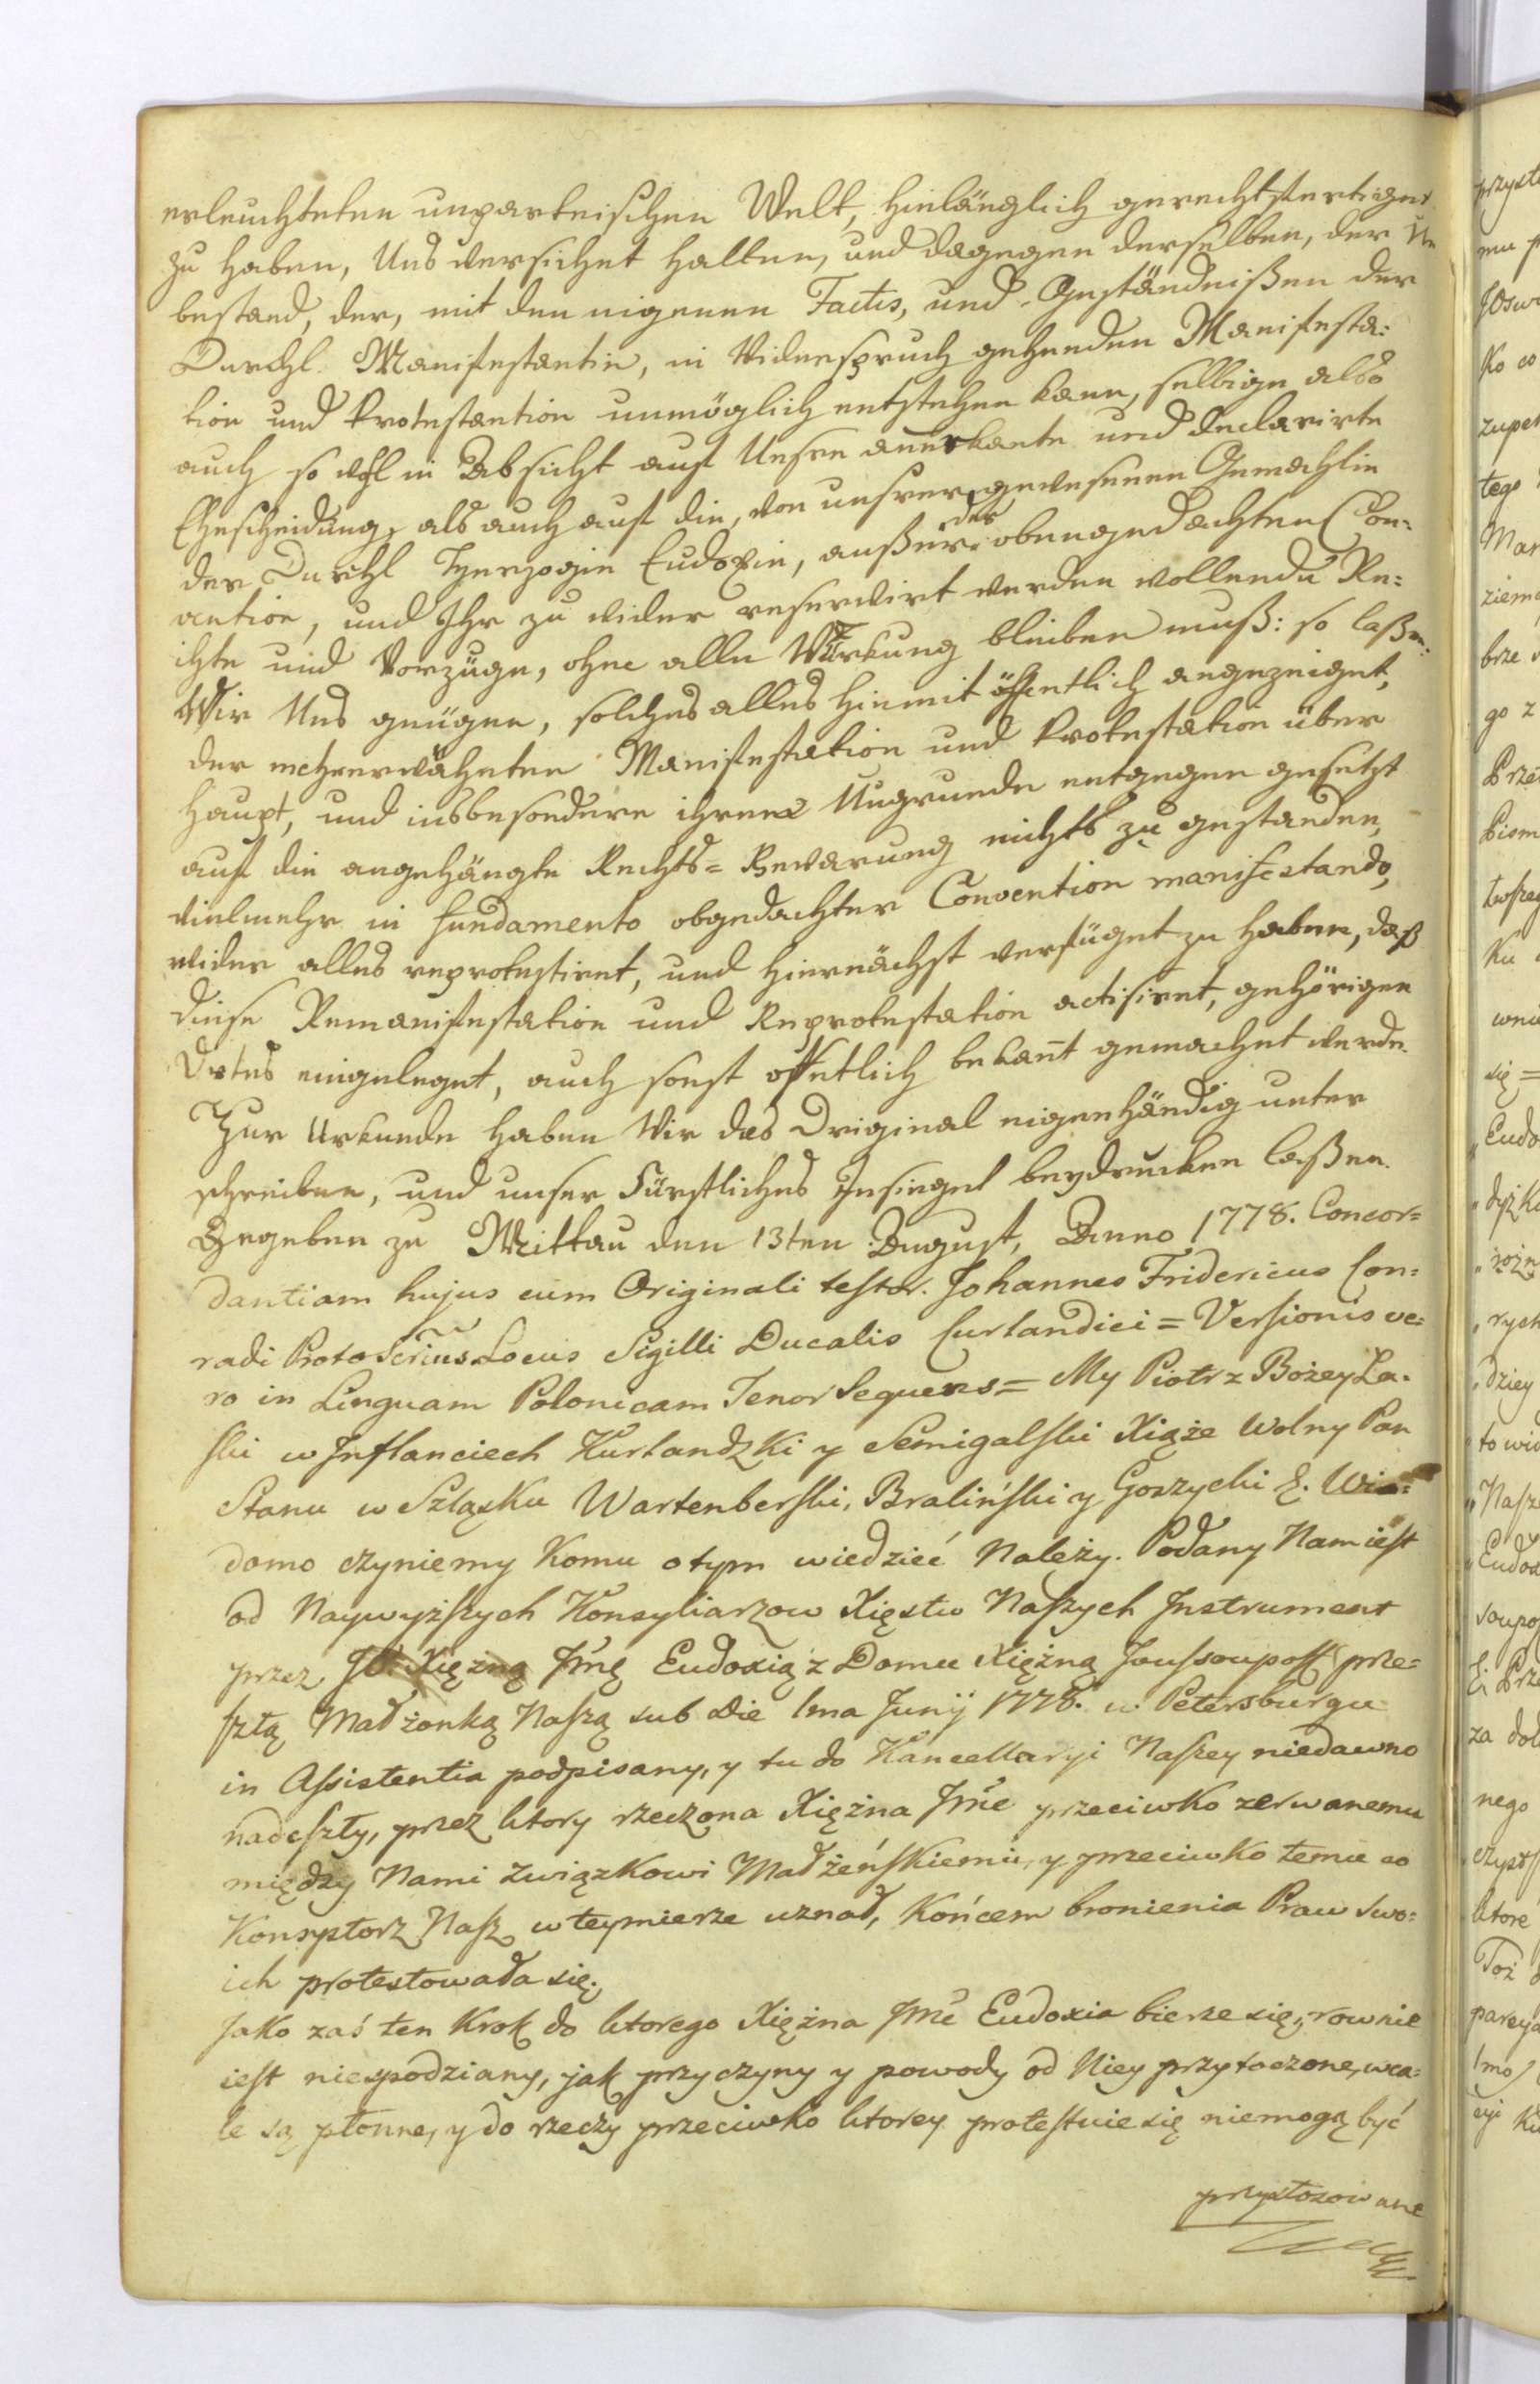 erleuchteten unparteischen Welt, hinlänglich gerechtfertiget
zu haben, Uns versichet halten, und dagegen derselben, der Un
bestand, der, mit den eigenen Factis, und Geständnißen der
Durchl. Manifestantin, in Widerspruch gehenden Manifesta:
tion und Protestation unmöglich entstehen kann, selbige also
auch so wohl in Absicht auf Unsre anerkante und declarirte
Ehescheidung, als auch auf die, von unsrer gewesenen Gemahlin
der Durchl Herzogin Eudoxin, außer der obengedachten Con:
vention, und Ihr zu wider reservirt werden wollende Re:
chte und Vorzüge, ohne alle Würkung bleiben muß: so laßen
Wir Uns genügen, solches alles hiemit öffentlich angezeiget,
der mehrerwähnten Manifestation und Protestation über
haupt, und insbesondere ihrem Ungrunde entgegen gesetzt
auf die angehängte Rechts= Bewarung nichts zu gestanden,
vielmehr in fundamento obgedachter Convention manifestando,
wider alles reprotestiret, und hiernächst verfüget zu haben, daß
diese Remanifestation und Reprotestation actisiret, gehörigen
Ortes eingeleget, auch sonst öffentlich bekant gemachet werde.
Zur Urkunde haben Wir das Original eigenhändig unter
schreiben, und unser Fürstliches Insiegel beydrucken laßen.
Gegeben zu Mittau den 13ten August, Anno 1778. Concor=
dantiam hujus cum Originali testor. Johannes Fridericus Con:
radi Proto Scrius Locus Sigilli Ducalis Curlandici = Versionis ve:
ro in Linguam Polonicam Tenor Sequens = My Piotr z Bożey Ła.
ski w Inflanciech Kurlandzki y Semigalski Xiąże Wolny Pan
Stanu w Szląsku Wartenberski, Braliński y Goszycki &. Wia:
domo czyniemy Komu o tym wiedzieć Należy. Podany Nam iest
od Naywyższych Konsyliarzow Xięstw Naszych Instrument
przez JO. Xiężną Jmę Eudoxią z Domu Xiężną Joussoupoff prze=
szłą Małżonką Naszą sub Die 1ma Junij 1778. w Petersburgu
in Assistentia podpisany, y tu do Kancellaryi Naszey niedawno
nadeszły, przez ktory rzeczona Xiężna Jmć przeciwko zerwanemu
między Nami związkowi Małżeńskiemu, y przeciwko temu co
Konsystorz Nasz w teymierze uznał, Końcem bronienia Praw swo:
ich protestowała się;
Jako zaś ten Krok do ktorego Xiężna Jmć Eudoxia bierze się, rownie
iest niespodziany, jak przyczyny y powody od Niey przytoczone, wca:
le są płonne, y do rzeczy przeciwko ktorey protestuie się niemogą być
przystosowane